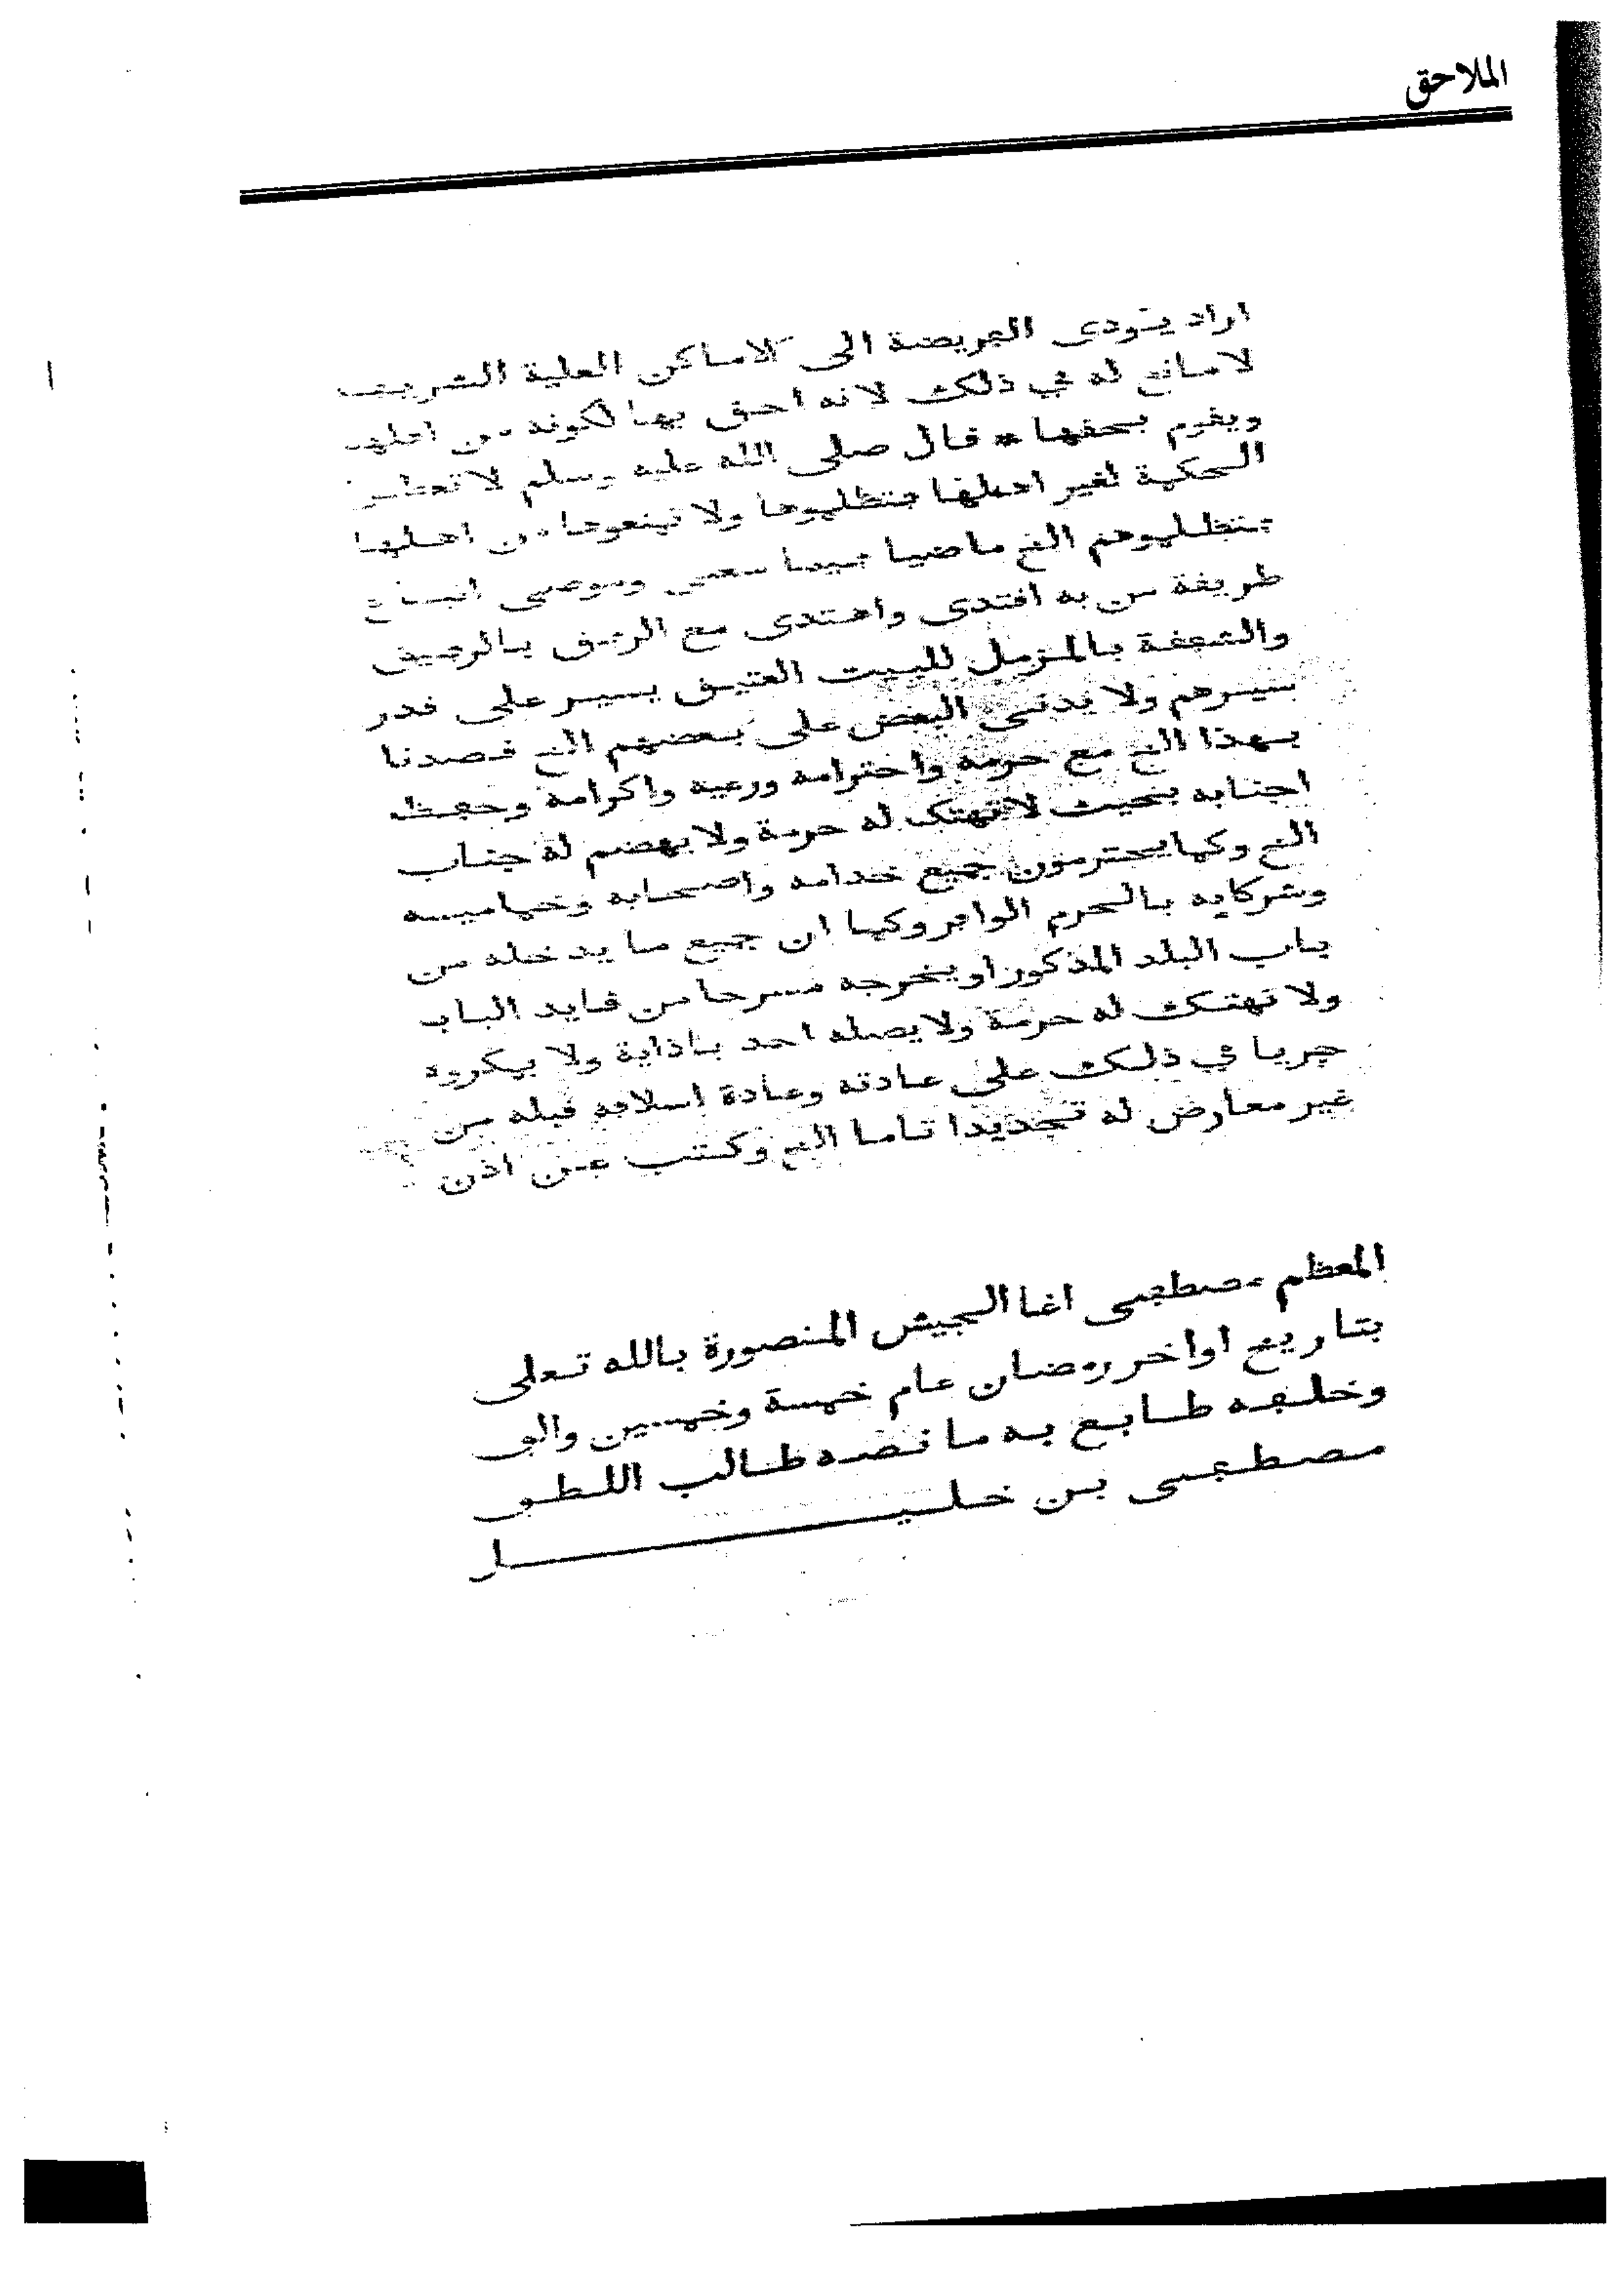 الملاحق
اراد يودى الفريضة الى الاماكن العلية الشريفـ
لا مانع له في ذلك لانه احق بها لكونه من اهلهـ
ويقوم بحقها * قال صلى الله عليه وسلم لا تعطـوا
الحكمة لغير اهلها فتظلموها ولا تمنعوها من اهلها
فتظلموهم الخ ماضيا فيما سعى وموصى اتباع
طريقة من به اقتدى واهتدى مع الرفق بالرفيق
والشفقة بالمزمل للبيت العتيق يسير على قدر
سيرهم ولا يدنى البعض على بعضهم الخ قصدنا
بهذا الخ مع حرمه واحترامه ورعيه واكرامه وحفظ
اجنابه بحيث لا تهتك له حرمة ولا يهضم له جناب
الخ وكما يحترمون جميع خدامه واصحابه وخماميسه
وشركايه بالحرم الوافر وكما ان جميع ما يدخله من
باب البلد المذكور او يخرجه مسرحا من قايد الباب
ولا تهتك له حرمة ولا يصله احد باذاية ولا بمكروه
جريا في ذلك على عادته وعادة اسلافه قبله من
غير معارض له تجديدا تاما الخ وكتب عن اذن
المعظم مصطفى اغا الجيش المنصورة بالله تعلى
بتاريخ اواخر رمضان عام خمسة وخمسين والف
وخلفه طابع به ما نصه طالب اللطف
مصطفى بن خليل